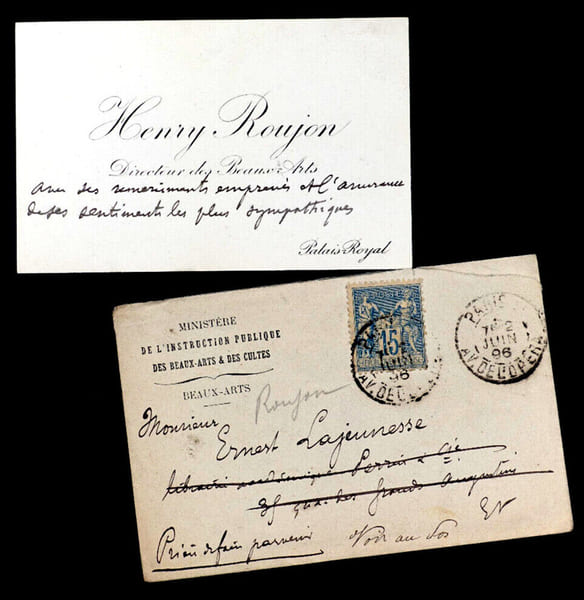 Henry Roujon
Directeur des Beaux-Arts
avec ses remerciments empressés et l'assurance
de ses sentiments les plus sympathiques
Palais-Royal
MINISTÈRE
DE L'INSTRUCTION PUBLIQUE
DES BEAUX-ARTS & DES CULTES
BEAUX-ARTS
Roujon
15
PARIS
JUIN
96
AV. DE L'OPERA
PARIS
7E 2
JUIN
96
AV. DE L'OPERA
Monsieur
Ernest Lajeunesse
librairie académique Perrin & Cie
35 quai des Grands Augustins
Prière de faire parvenir
Voir au dos